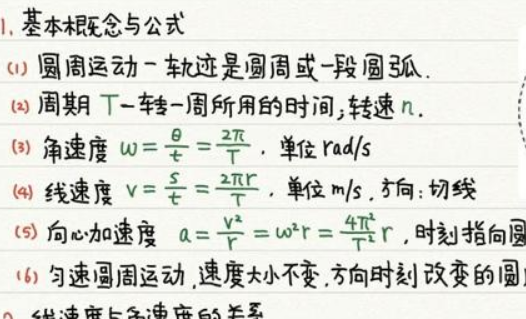 1. 基本概念与公式
(1) 圆周运动-轨迹是圆周或一段圆弧.
(2) 周期 T-转一周所用的时间;转速 n.
(3) 角速度 ω = θ/t = 2π/T . 单位 rad/s
(4) 线速度 v = s/t = 2πr/T . 单位 m/s . 方向:切线
(5) 向心加速度 a = v²/r = ω²r = 4π²/T² r , 时刻指向圆
(6) 匀速圆周运动,速度大小不变.方向时刻改变的圆
线速度与角速度的关系